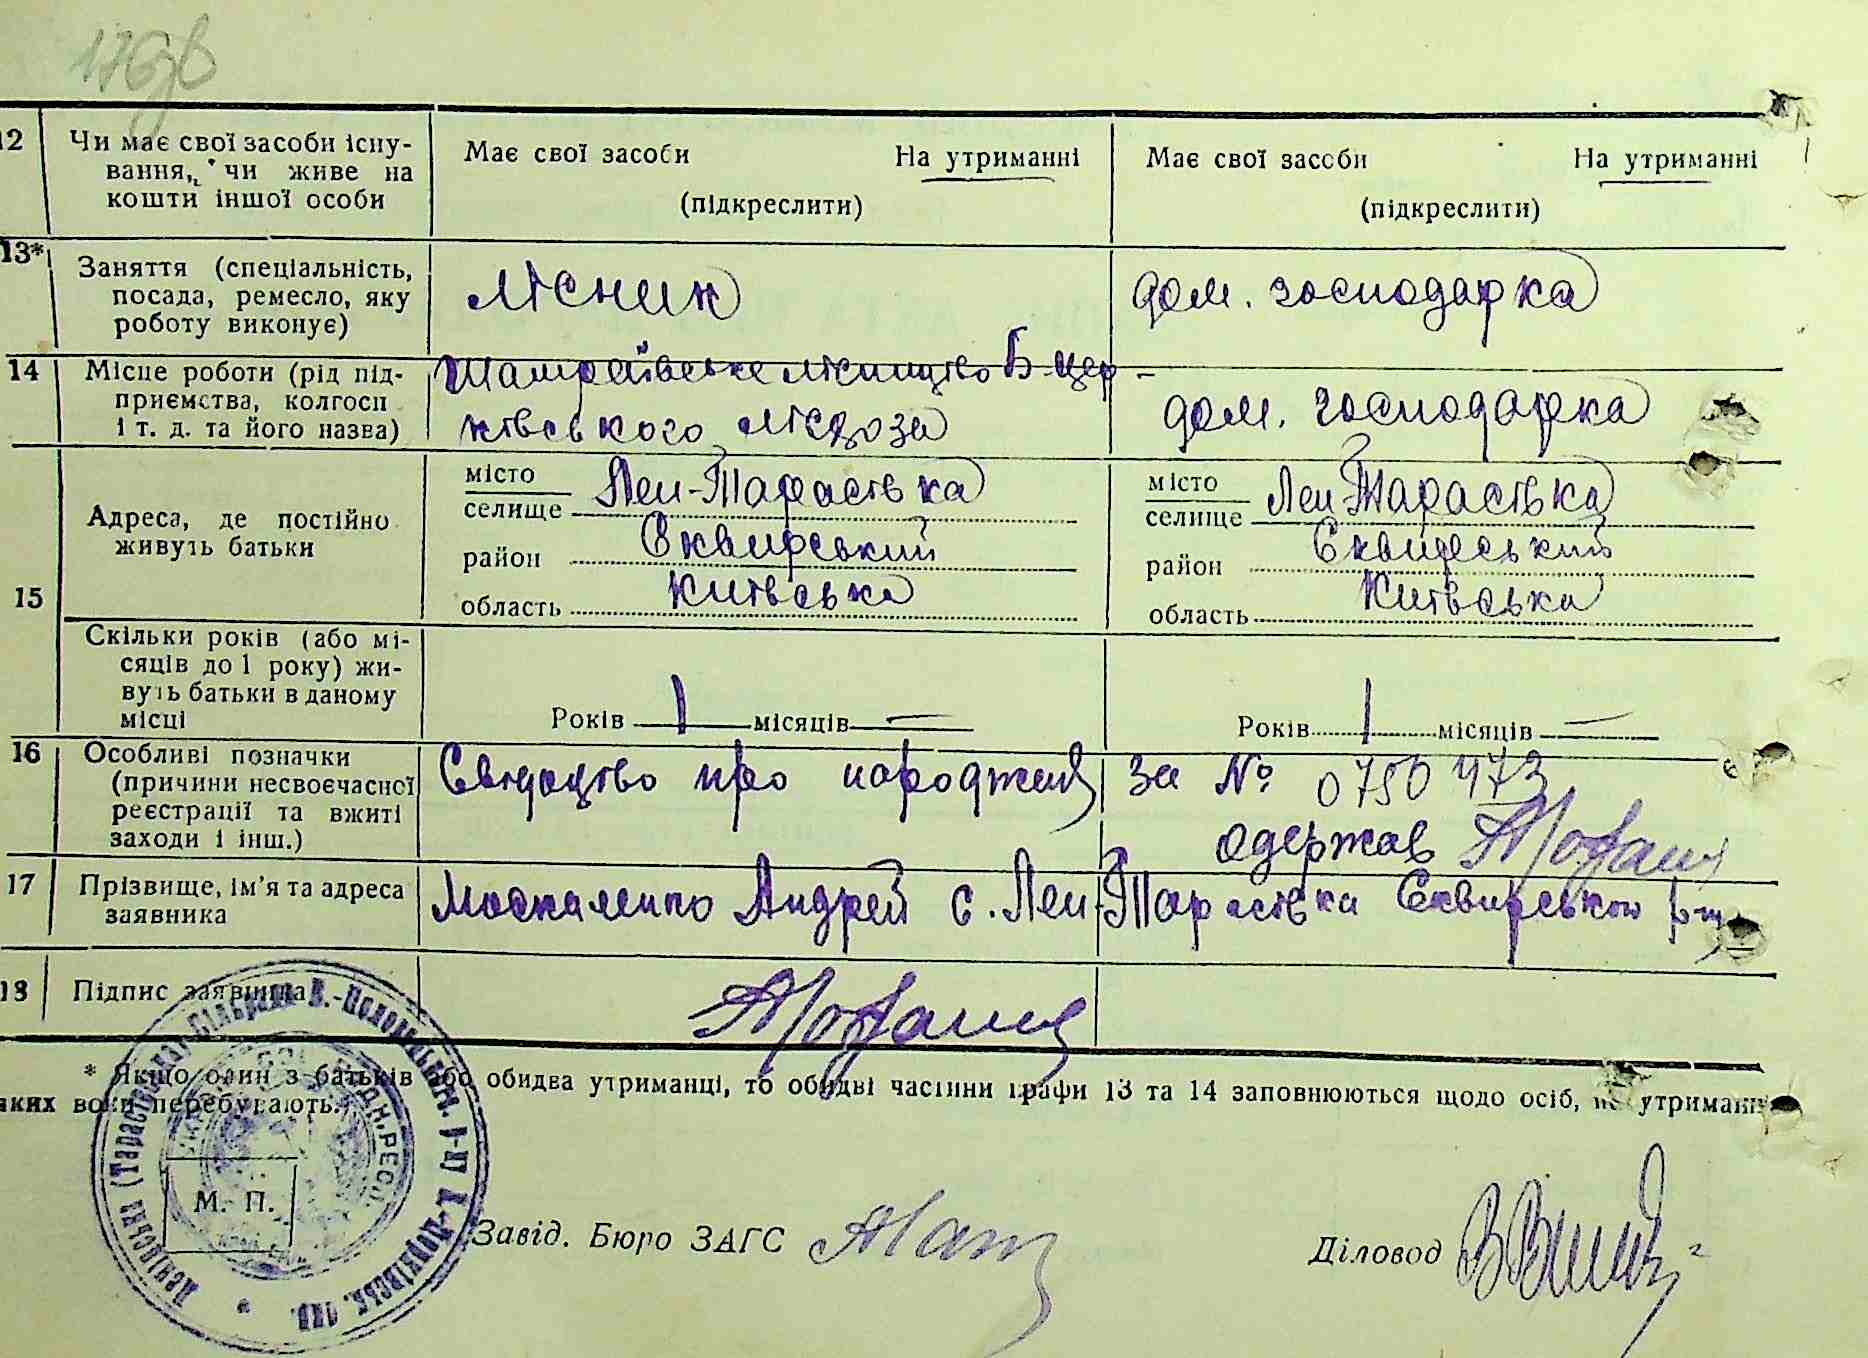 176зв
12 Чи має свої засоби існу-
вання, чи живе на
кошти іншої особи
Має свої засоби На утриманні
(підкреслити)
Має свої засоби На утриманні
(підкреслити)
13* Заняття (спеціальність,
посада, ремесло, яку
роботу виконує)
лісник
дом. господарка
14 Місце роботи (рід під-
приємства, колгосп
і т. д. та його назва)
Шамраївське лісництво Б-Цер-
ківського лісгоза
дом. господарка
15 Адреса, де постійно
живуть батьки
місто
селище Лен-Тарасівка
район Сквирський
область Київська
місто
селище Лен Тарасівка
район Сквирський
область Київська
Скільки років (або мі-
сяців до 1 року) жи-
вуть батьки в даному
місці
Років 1 місяців —
Років 1 місяців —
16 Особливі позначки
(причини несвоєчасної
реєстрації та вжиті
заходи і інш.)
Свідоцтво про народження за № 0750473
одержав
17 Прізвище, ім'я та адреса
заявника
Москаленко Андрей с. Лен-Тарасівка Сквирського р-ну
18 Підпис заявника
* Якщо один з батьків або обидва утриманці, то обидві частини графи 13 та 14 заповнюються щодо осіб, на утриманні
яких вони перебувають.
М. П.
Завід. Бюро ЗАГС
Діловод